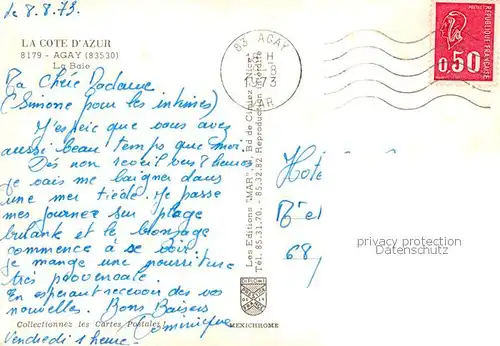 le 8.8.73
LA COTE D'AZUR
8179 - AGAY (83530)
La Baie
Ma Chère Madame
(Simone pour les intimes)
J'espeie que vous avez
aussi beau temps que moi.
Dès mon reveil vers 8 heures
je vais me baigner dans
une mer tiède. Je passe
mes journées sur plage
brulante et le bronzage
commence à se voir.
je mange une nourriture
très provencale.
En esperant recevoir de vos
nouvelles. Bons Baisers
Dominique
Vendredi 1 heure.
Collectionnez les Cartes Postales !
MEXICHROME
Les Editions "MAR", Bd de Cimiez - Nice
Tél. 85.31.70. - 85.32.82 Reproduction interdite
83 AGAY
VAR
POSTES
REPUBLIQUE FRANÇAISE
0,50
Hôte
68
privacy protection
Datenschutz